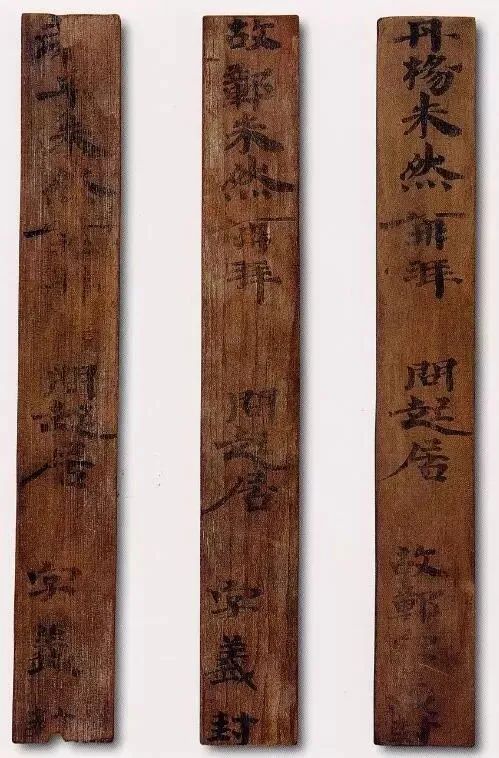 丹楊朱然再拜 問起居 故鄣
故鄣朱然再拜 問起居 字義封
朱然 問起居 字義封